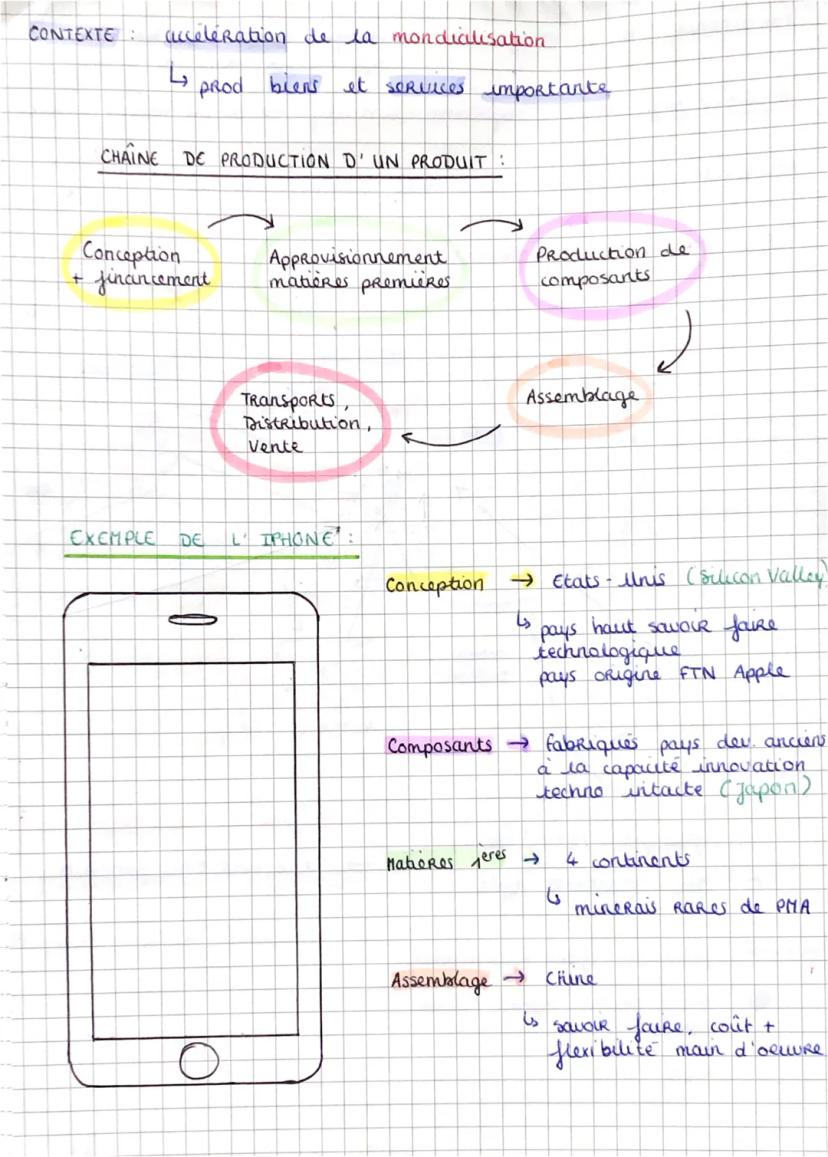 CONTEXTE : accélération de la mondialisation
↳ prod biens et services importante
CHAÎNE DE PRODUCTION D'UN PRODUIT :
Conception
+ financement
Approvisionnement
matières premières
Production de
composants
Assemblage
Transports,
Distribution,
Vente
EXEMPLE DE L'IPHONE :
Conception → Etats-Unis (Silicon Valley)
↳ pays haut savoir faire
technologique
pays origine FTN Apple
Composants → fabriqués pays dev. anciens
à la capacité innovation
techno intacte (Japon)
Matières 1ères → 4 continents
↳ minerais rares de PMA
Assemblage → Chine
↳ savoir faire, coût +
flexibilité main d'oeuvre